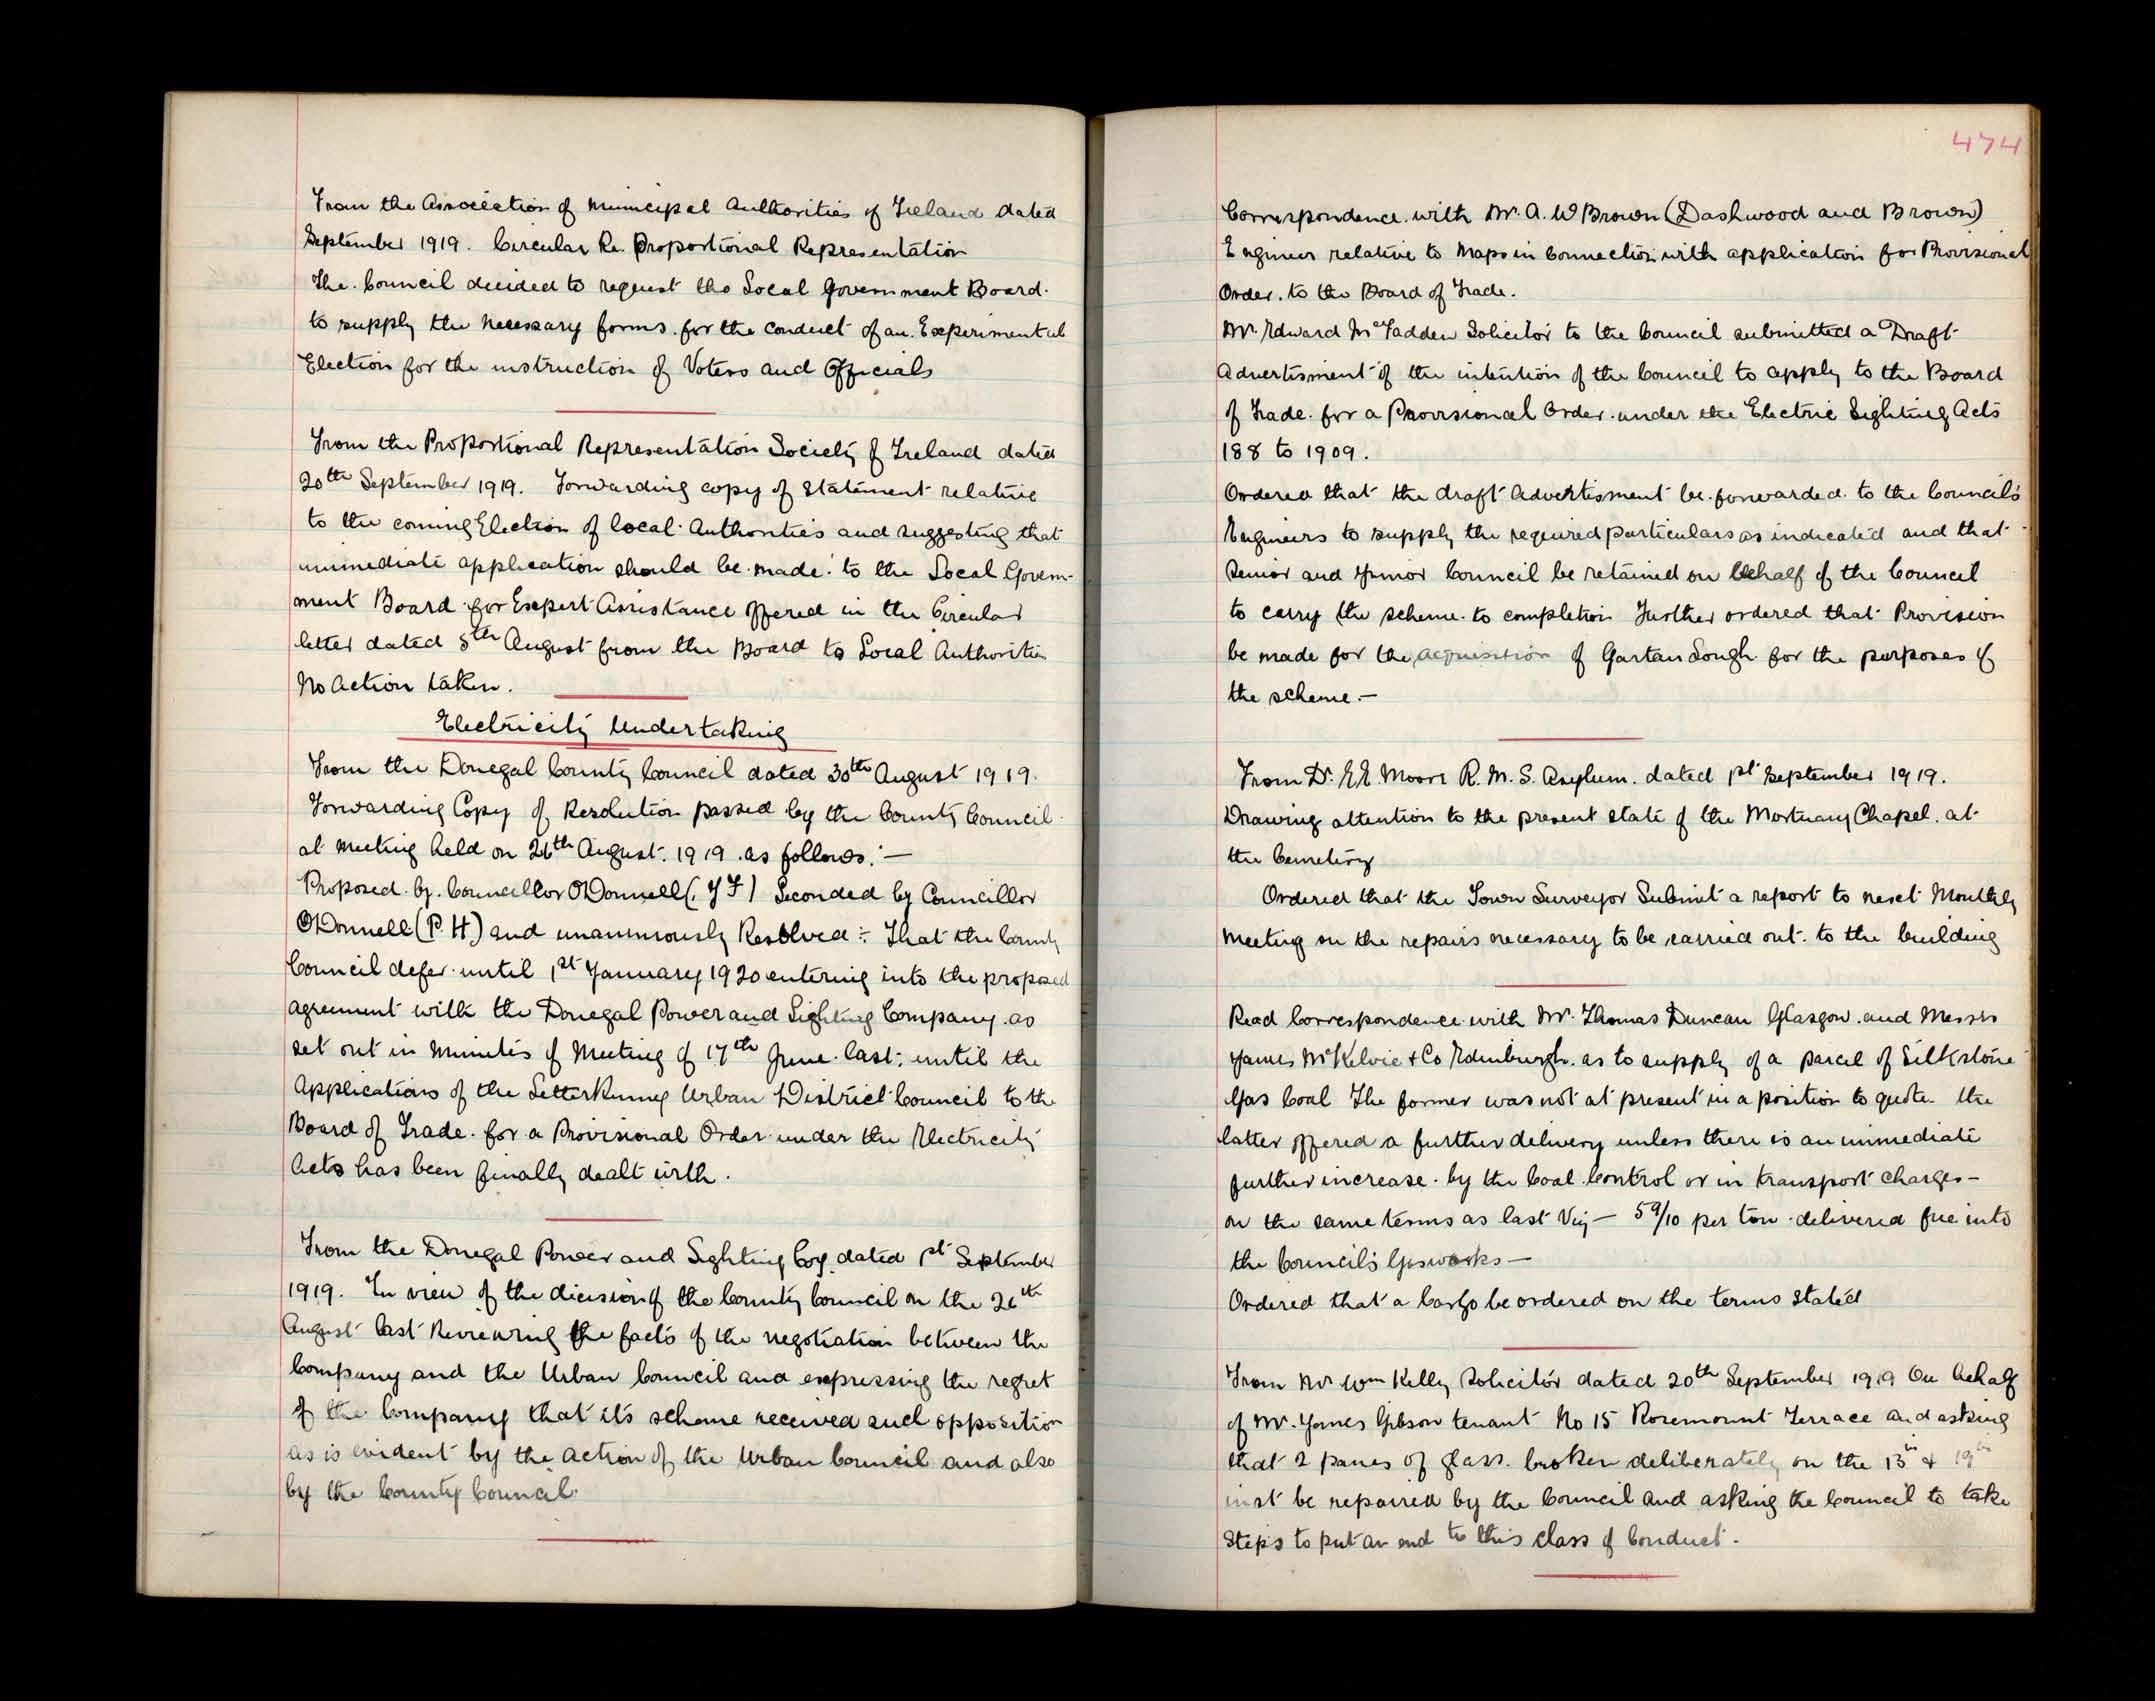 From the Association of Municipal Authorities of Ireland dated
September 1919. Circular Re. Proportional Representation
The Council decided to request the Local Government Board.
to supply the necessary forms for the conduct of an Experimental
Election for the instruction of Voters and Officials
From the Proportional Representation Society of Ireland dated
20th September 1919. Forwarding copy of statement relative
to the coming Election of local Authorities and suggesting that
immediate application should be made to the Local Govern-
ment Board for Expert Assistance offered in the Circular
letter dated 5th August from the Board to Local Authorities
No Action taken.
Electricity Undertaking
From the Donegal County Council dated 30th August 1919.
Forwarding Copy of Resolution passed by the County Council
at meeting held on 26th August. 1919 as follows:—
Proposed by Councillor O'Donnell (J F) Seconded by Councillor
O'Donnell (P. H.) and unanimously Resolved :- That the County
Council defer until 1st January 1920 entering into the proposed
agreement with the Donegal Power and Lighting Company as
set out in Minutes of Meeting of 17th June last; until the
Application of the Letterkenny Urban District Council to the
Board of Trade for a Provisional Order under the Electricity
Acts has been finally dealt with.
From the Donegal Power and Lighting Coy dated 1st September
1919. In view of the dicision of the County Council on the 26th
August last Reviewing the facts of the negotiation between the
Company and the Urban Council and expressing the regret
of the Company that it's scheme received such opposition
as is evident by the action of the Urban Council and also
by the County Council.
474
Correspondence with Mr. A. W Brown (Dashwood and Brown)
Engineer relative to Maps in Connection with application for Provisional
Order. to the Board of Trade.
Mr. Edward McFadden Solicitor to the Council submitted a Draft
Advertisment of the intention of the Council to apply to the Board
of Trade for a Provisional Order under the Electric Lighting Acts
188 to 1909.
Ordered that the draft Advertisment be forwarded to the Council's
Engineers to supply the required particulars as indicated and that
Senior and Junior Council be retained on behalf of the Council
to carry the scheme to completion Further ordered that Provision
be made for the acquisition of Gartan Lough for the purposes of
the scheme.—
From Dr. E E. Moore R. M. S. Asylum. dated 1st September 1919.
Drawing attention to the present state of the Mortuary Chapel. at
the Cemetery
Ordered that the Town Surveyor Submit a report to next Monthly
Meeting on the repairs necessary to be carried out to the building
Read Correspondence with Mr. Thomas Duncan Glasgow and Messrs
James McKelvie & Co Edinburgh. as to supply of a parcel of Silkstone
Gas Coal The former was not at present in a position to quote the
latter offered a further delivery unless there is an immediate
further increase by the Coal Control or in transport charges—
on the same terms as last Viz— 59/10 per ton delivered free into
the Council's Gasworks—
Ordered that a Cargo be ordered on the terms stated
From Mr Wm Kelly Solicitor dated 20th September 1919 On behalf
of Mr. James Gibson tenant No 15 Rosemount Terrace and asking
that 2 panes of glass. broken deliberately on the 13th & 19th
inst be repaired by the Council and asking the Council to take
Steps to put an end to this class of Conduct.